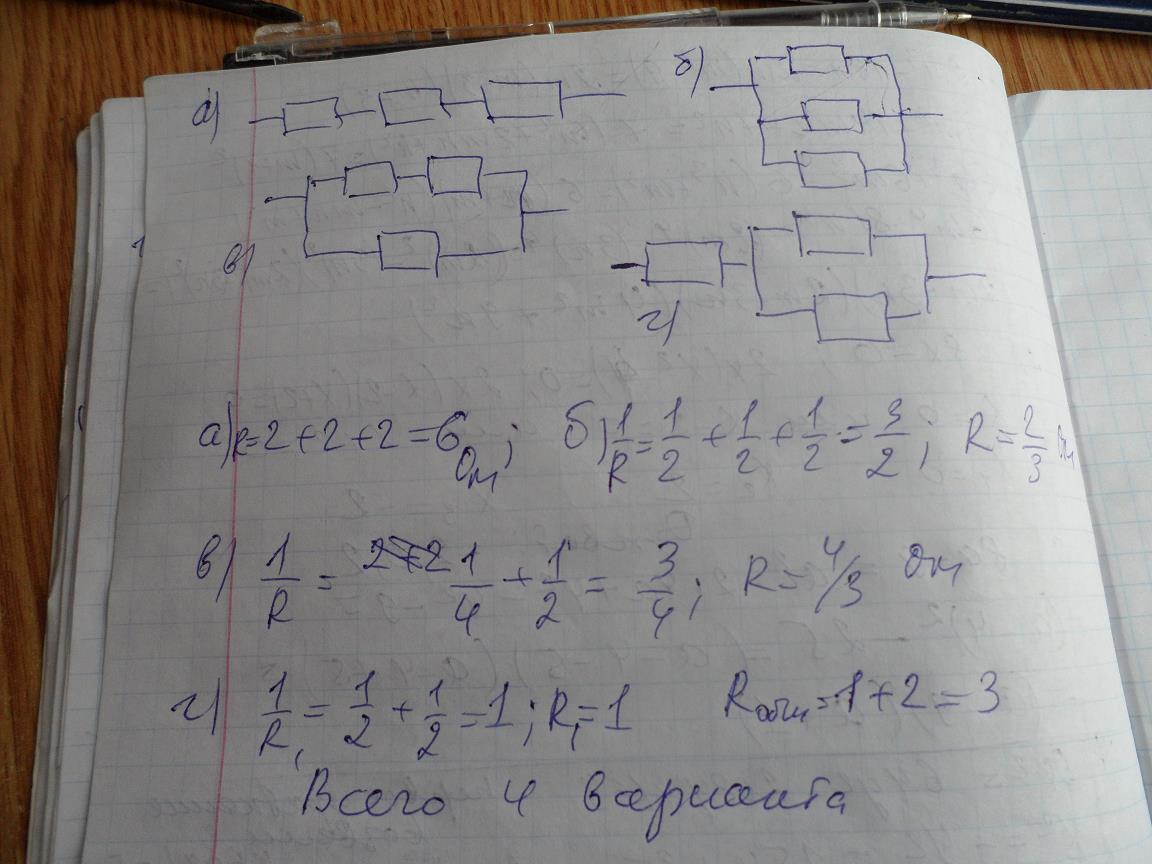 а) б)
в) г)
а) R=2+2+2=6 Ом; б) 1/R=1/2+1/2+1/2=3/2; R=2/3 Ом
в) 1/R=1/4+1/2=3/4; R=4/3 Ом
г) 1/R₁=1/2+1/2=1; R₁=1 Rобщ=1+2=3
Всего 4 варианта